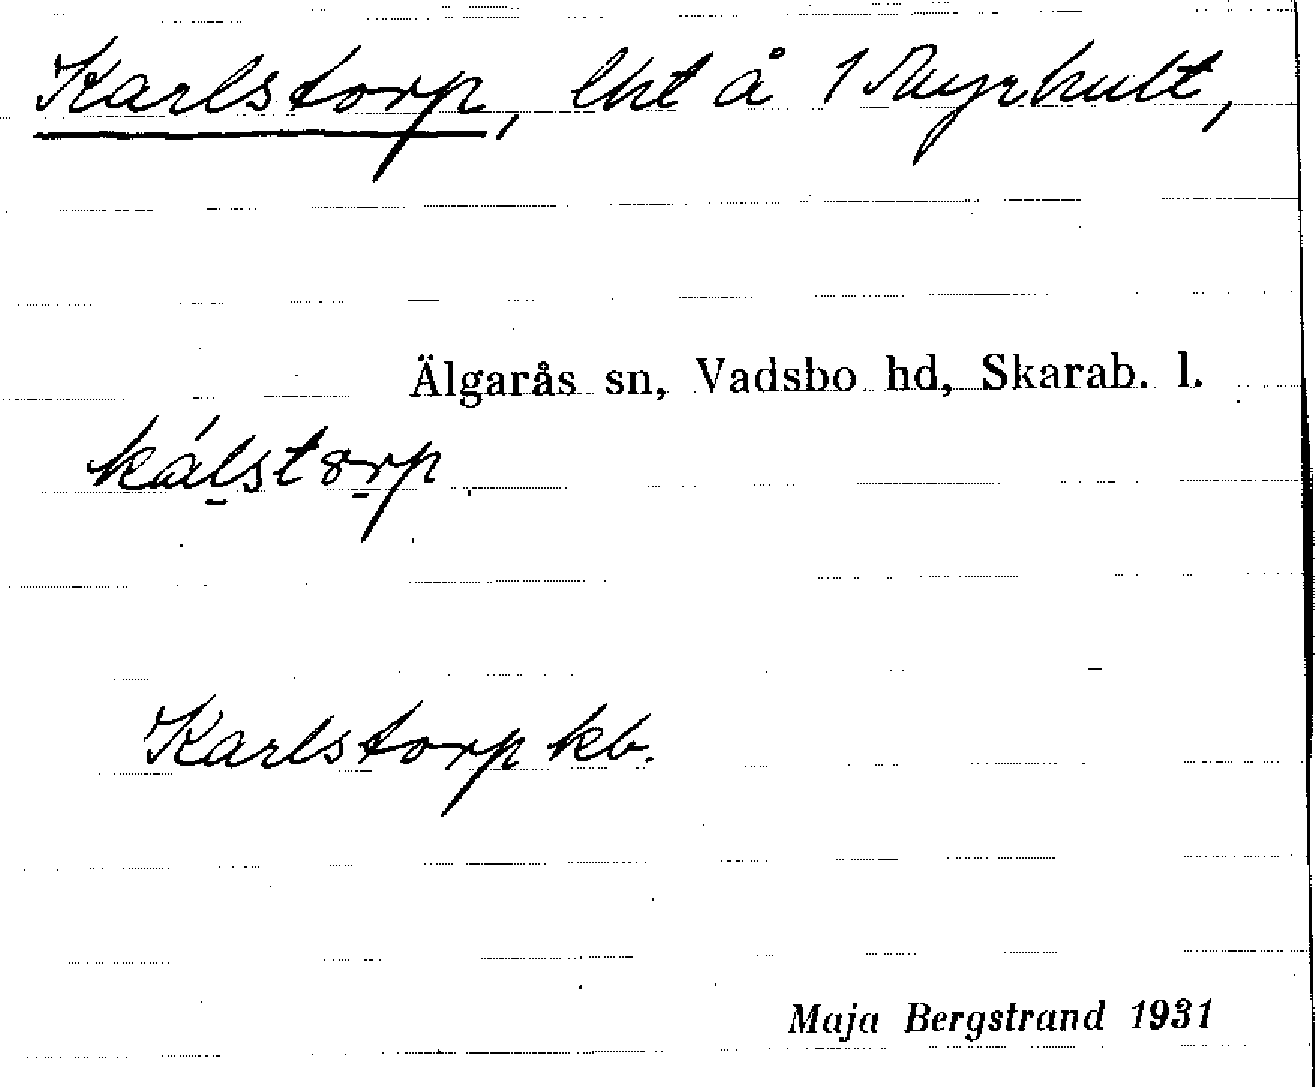 Karlstorp, lht å 1 Myrhult,
Älgarås sn, Vadsbo hd, Skarab. l.
kál̠stor̠p
Karlstorp kb.
Maja Bergstrand 1931